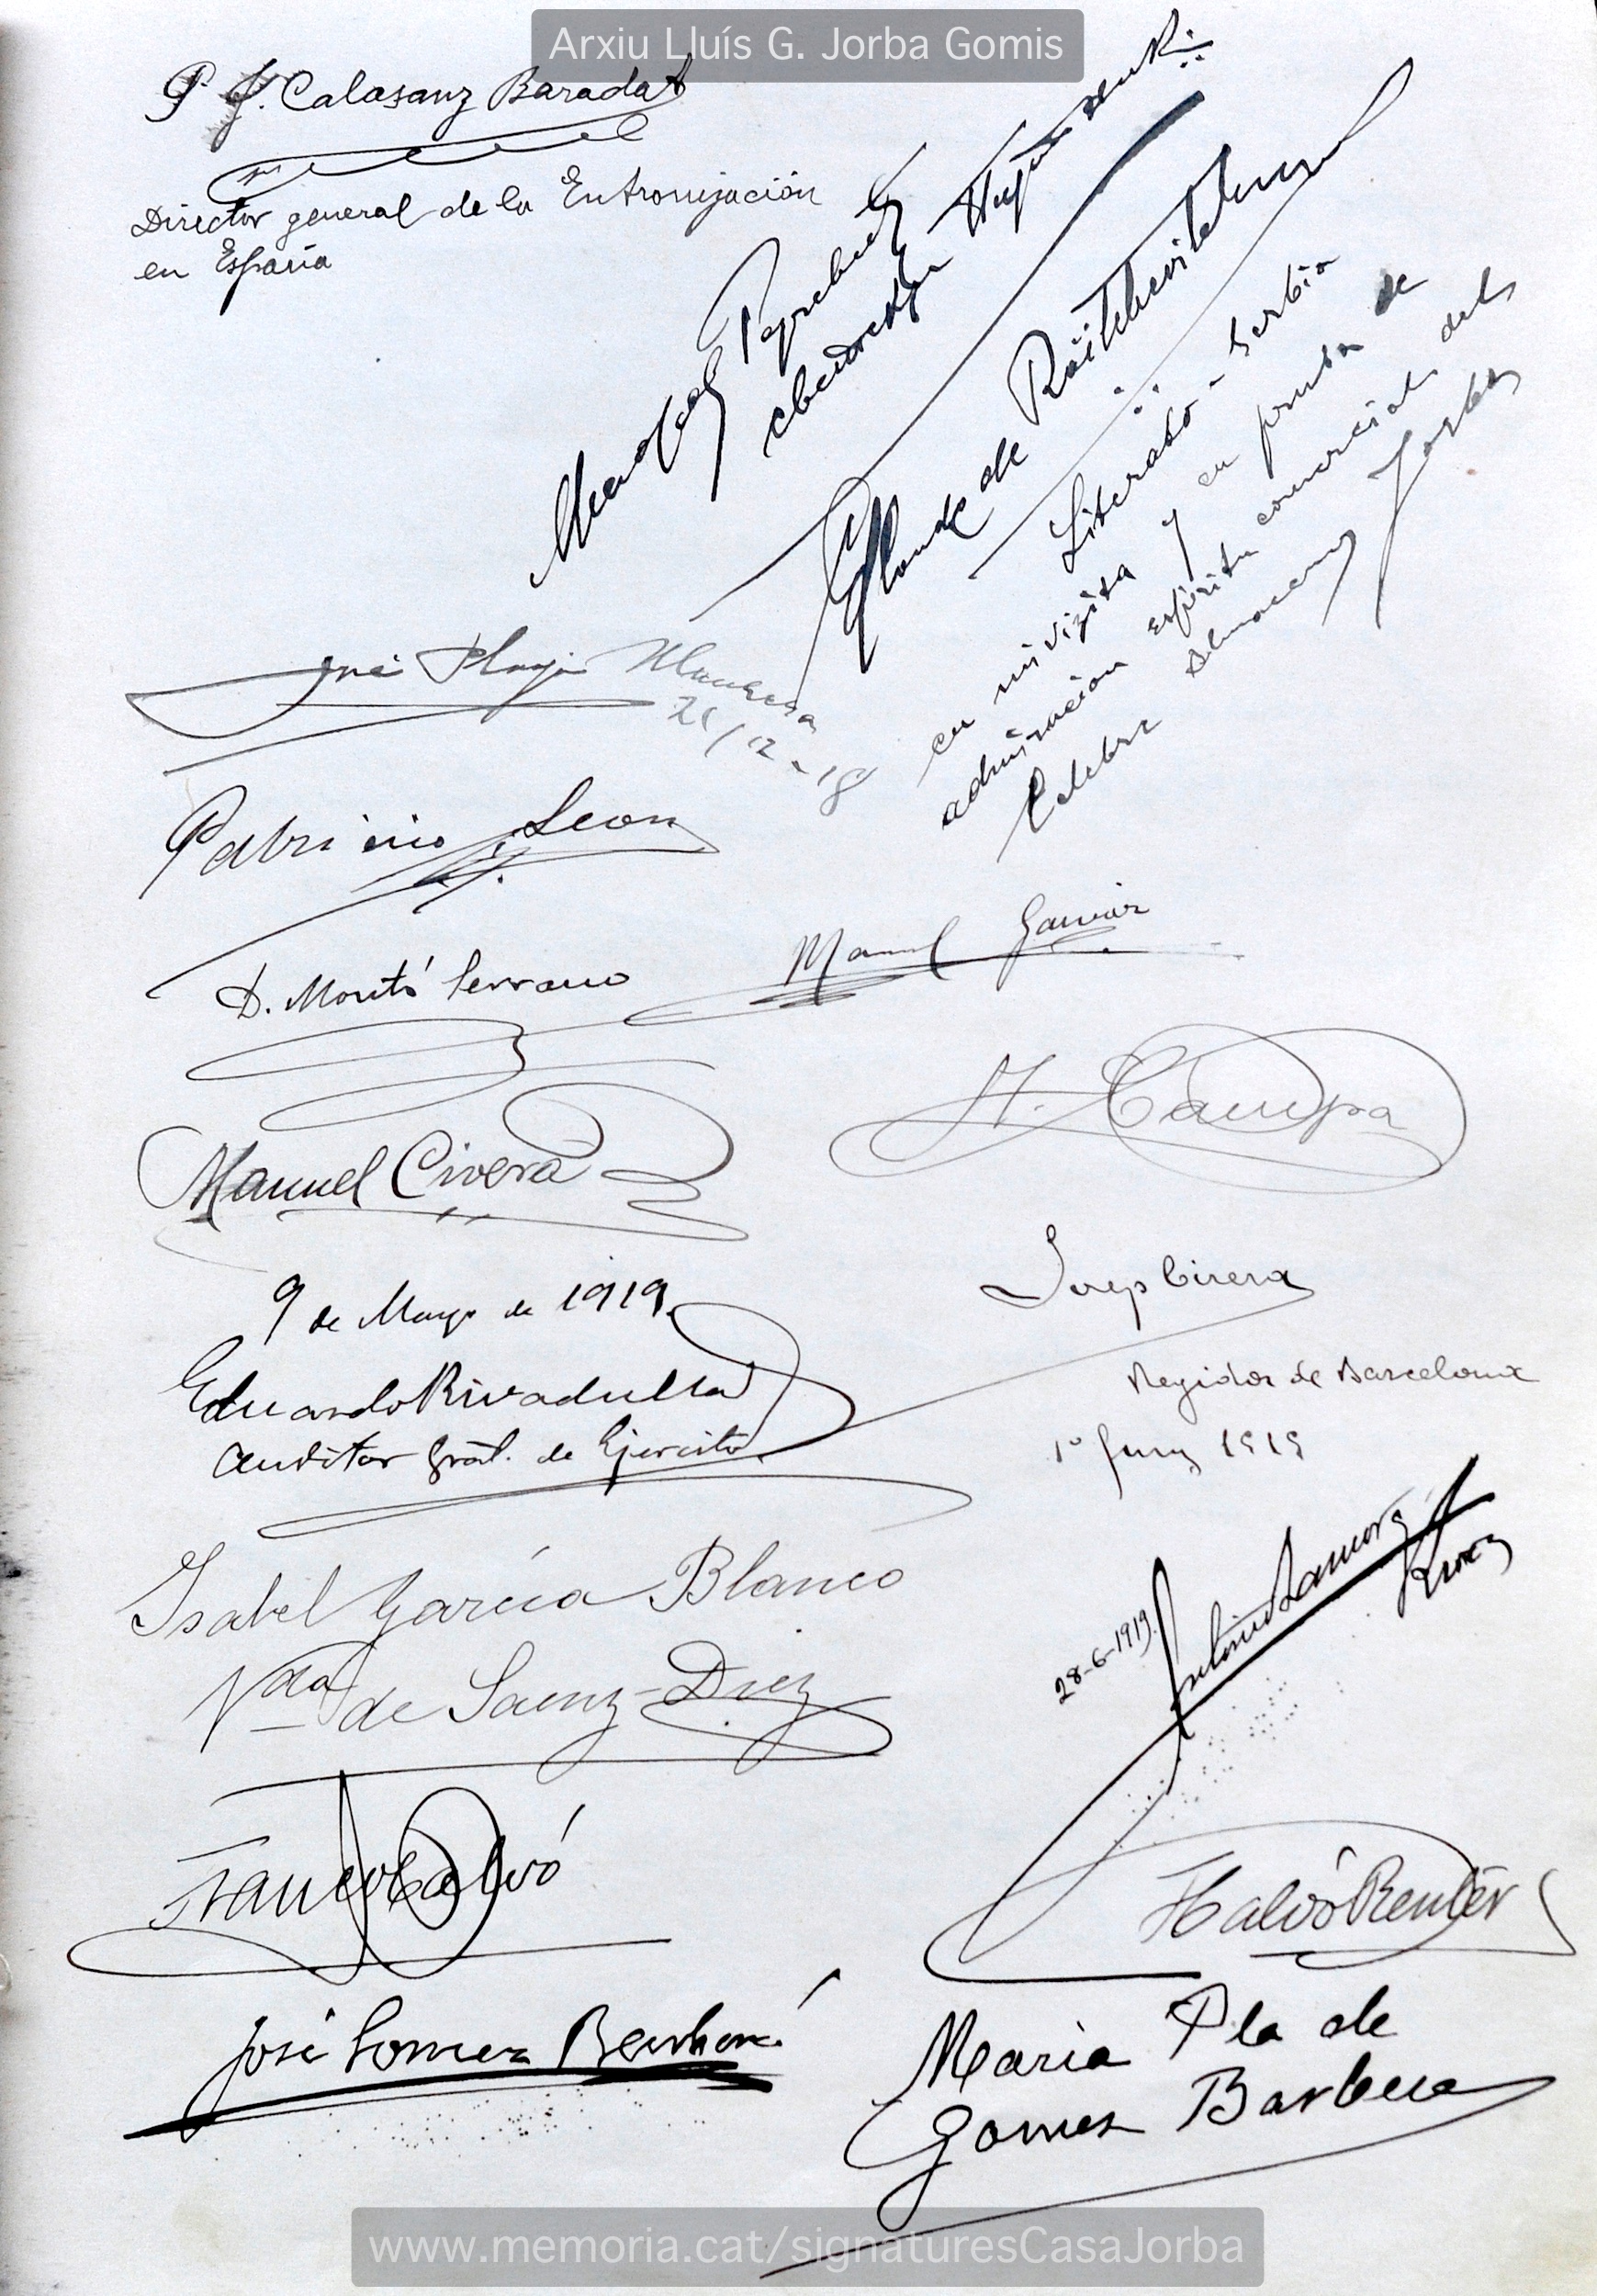 Arxiu Lluís G. Jorba Gomis
P. J. Calasanz Baradat
Director general de la Entronización
en España
Conde de
Literato - Serbia
en mi vizita y en prueba de
admiración espíritu comercial dels
Celebre Almacenes Jorba
José Playá Manresa
21/12-18
Patricio Leon
Manuel
D. Montó Serrano
M. Campa
Manuel Civera
9 de Mayo de 1919
Eduardo Rivadulla
Auditor Gral. de Ejercito
Josep Cirera
Regidor de Barcelona
1º Juny 1919
Isabel García Blanco
Vda de Saenz-Diez
28-6-1919
Antonio Zamora
Franco Calvó
Calvó Renter
José Gomez Barberá
Maria Pla de
Gomez Barbera
www.memoria.cat/signaturesCasaJorba